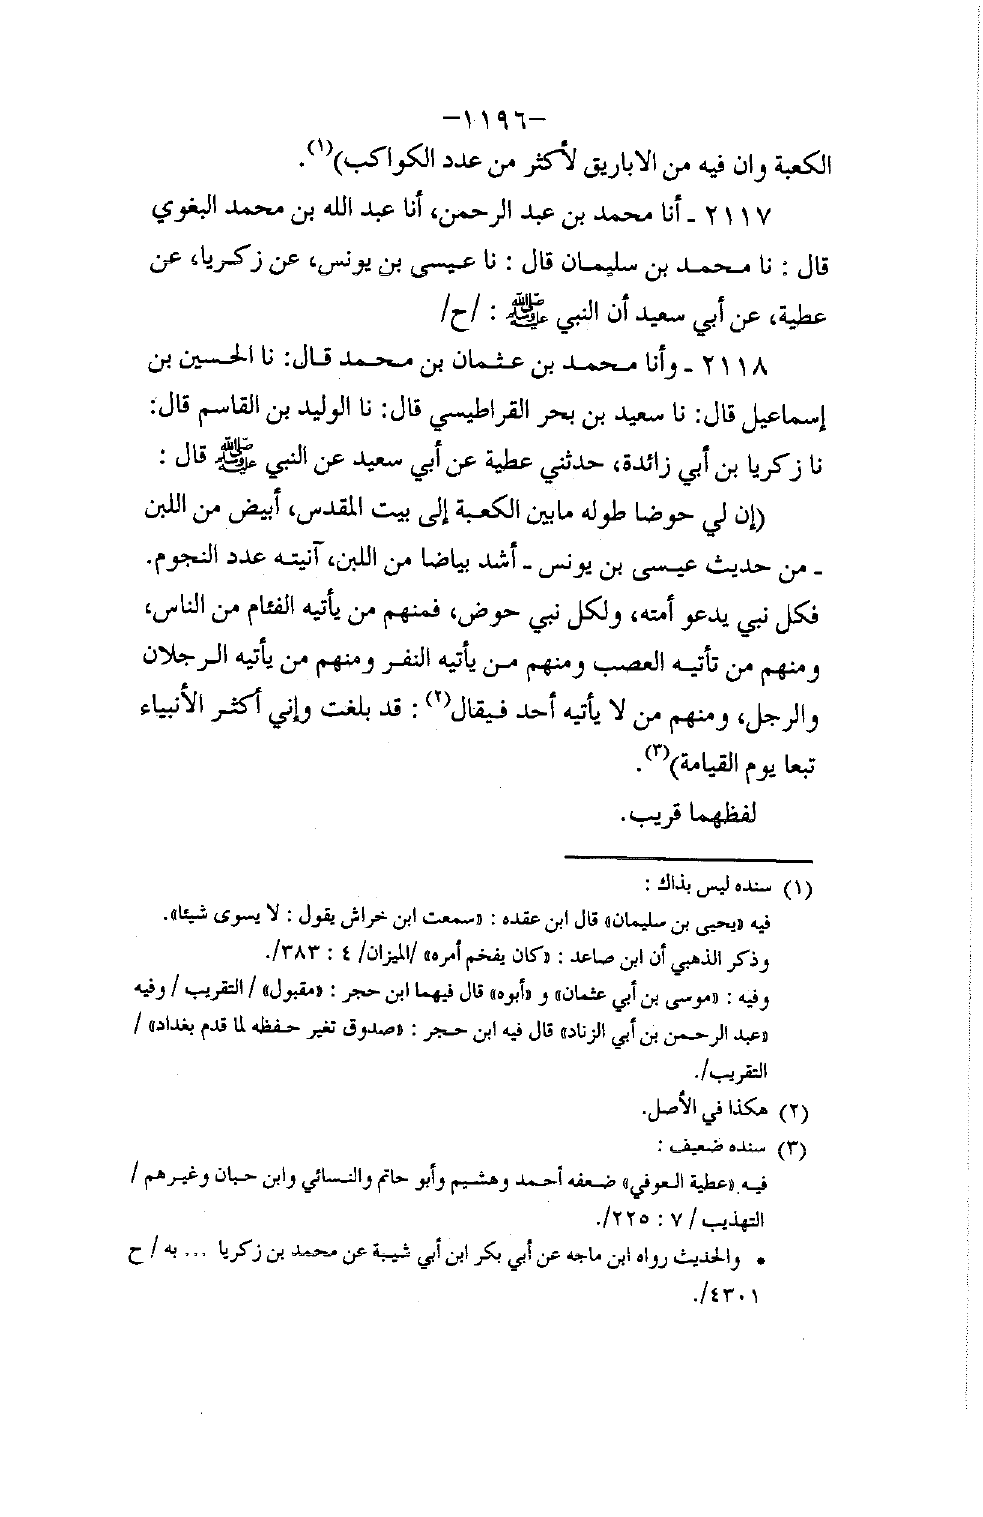 -١١٩٦-
الكعبة وان فيه من الاباريق لأكثر من عدد الكواكب)(١).
٢١١٧ ـ أنا محمد بن عبد الرحمن، أنا عبد الله بن محمد البغوي
قال : نا محمد بن سليمان قال : نا عيسى بن يونس، عن زكريا، عن
عطية، عن أبي سعيد أن النبي ﷺ : /ح/
٢١١٨ ـ وأنا محمد بن عثمان بن محمد قال: نا الحسين بن
إسماعيل قال: نا سعيد بن بحر القراطيسي قال: نا الوليد بن القاسم قال:
نا زكريا بن أبي زائدة، حدثني عطية عن أبي سعيد عن النبي ﷺ قال :
(إن لي حوضا طوله مابين الكعبة إلى بيت المقدس، أبيض من اللبن
ـ من حديث عيسى بن يونس ـ أشد بياضا من اللبن، آنيته عدد النجوم.
فكل نبي يدعو أمته، ولكل نبي حوض، فمنهم من يأتيه الفئام من الناس،
ومنهم من تأتيه العصب ومنهم من يأتيه النفر ومنهم من يأتيه الرجلان
والرجل، ومنهم من لا يأتيه أحد فيقال(٢) : قد بلغت وإني أكثر الأنبياء
تبعا يوم القيامة)(٣).
لفظهما قريب.
(١) سنده ليس بذاك :
فيه «يحيى بن سليمان» قال ابن عقده : «سمعت ابن خراش يقول : لا يسوى شيئا».
وذكر الذهبي أن ابن صاعد : «كان يفخم أمره» /الميزان/ ٤ : ٣٨٣/.
وفيه : «موسى بن أبي عثمان» و «أبوه» قال فيهما ابن حجر : «مقبول» / التقريب / وفيه
«عبد الرحمن بن أبي الزناد» قال فيه ابن حجر : «صدوق تغير حفظه لما قدم بغداد» /
التقريب/.
(٢) هكذا في الأصل.
(٣) سنده ضعيف :
فيه «عطية العوفي» ضعفه أحمد وهشيم وأبو حاتم والنسائي وابن حبان وغيرهم /
التهذيب / ٧ : ٢٢٥/.
• والحديث رواه ابن ماجه عن أبي بكر ابن أبي شيبة عن محمد بن زكريا ... به / ح
٤٣٠١/.